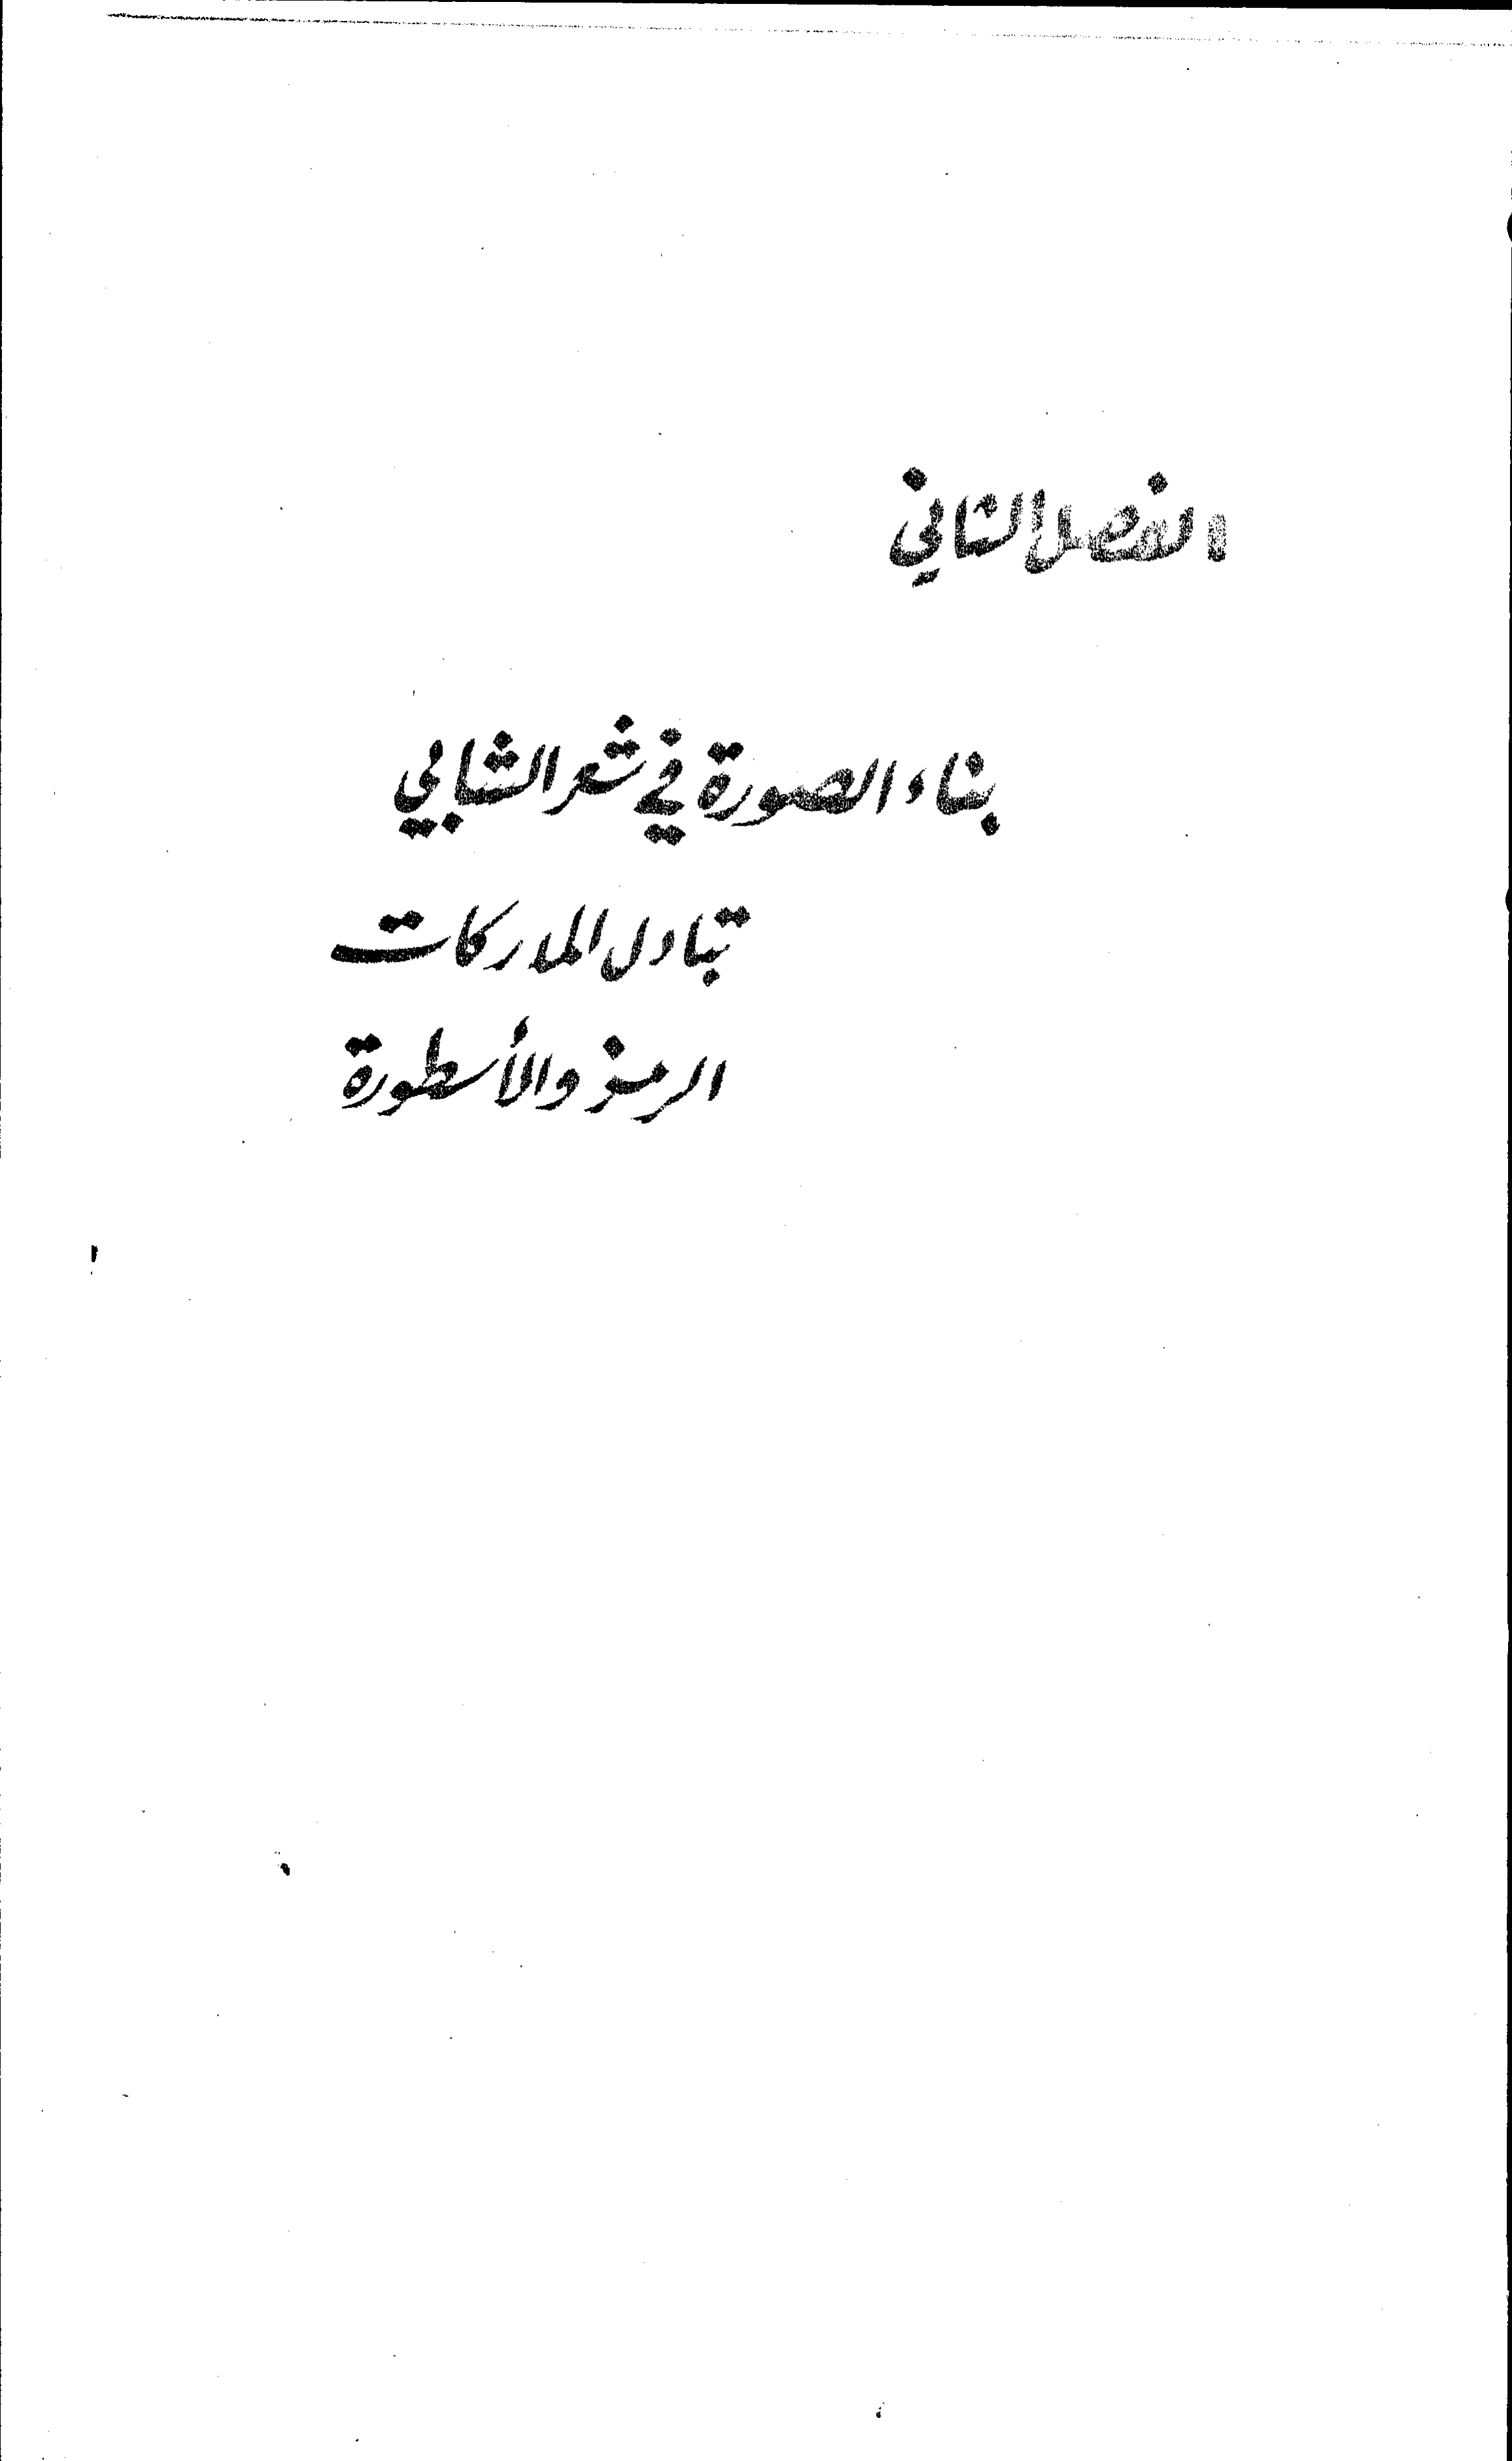 الفصل الثاني
بناء الصورة في شعر الشابي
تبادل المدركات
الرمز والأسطورة